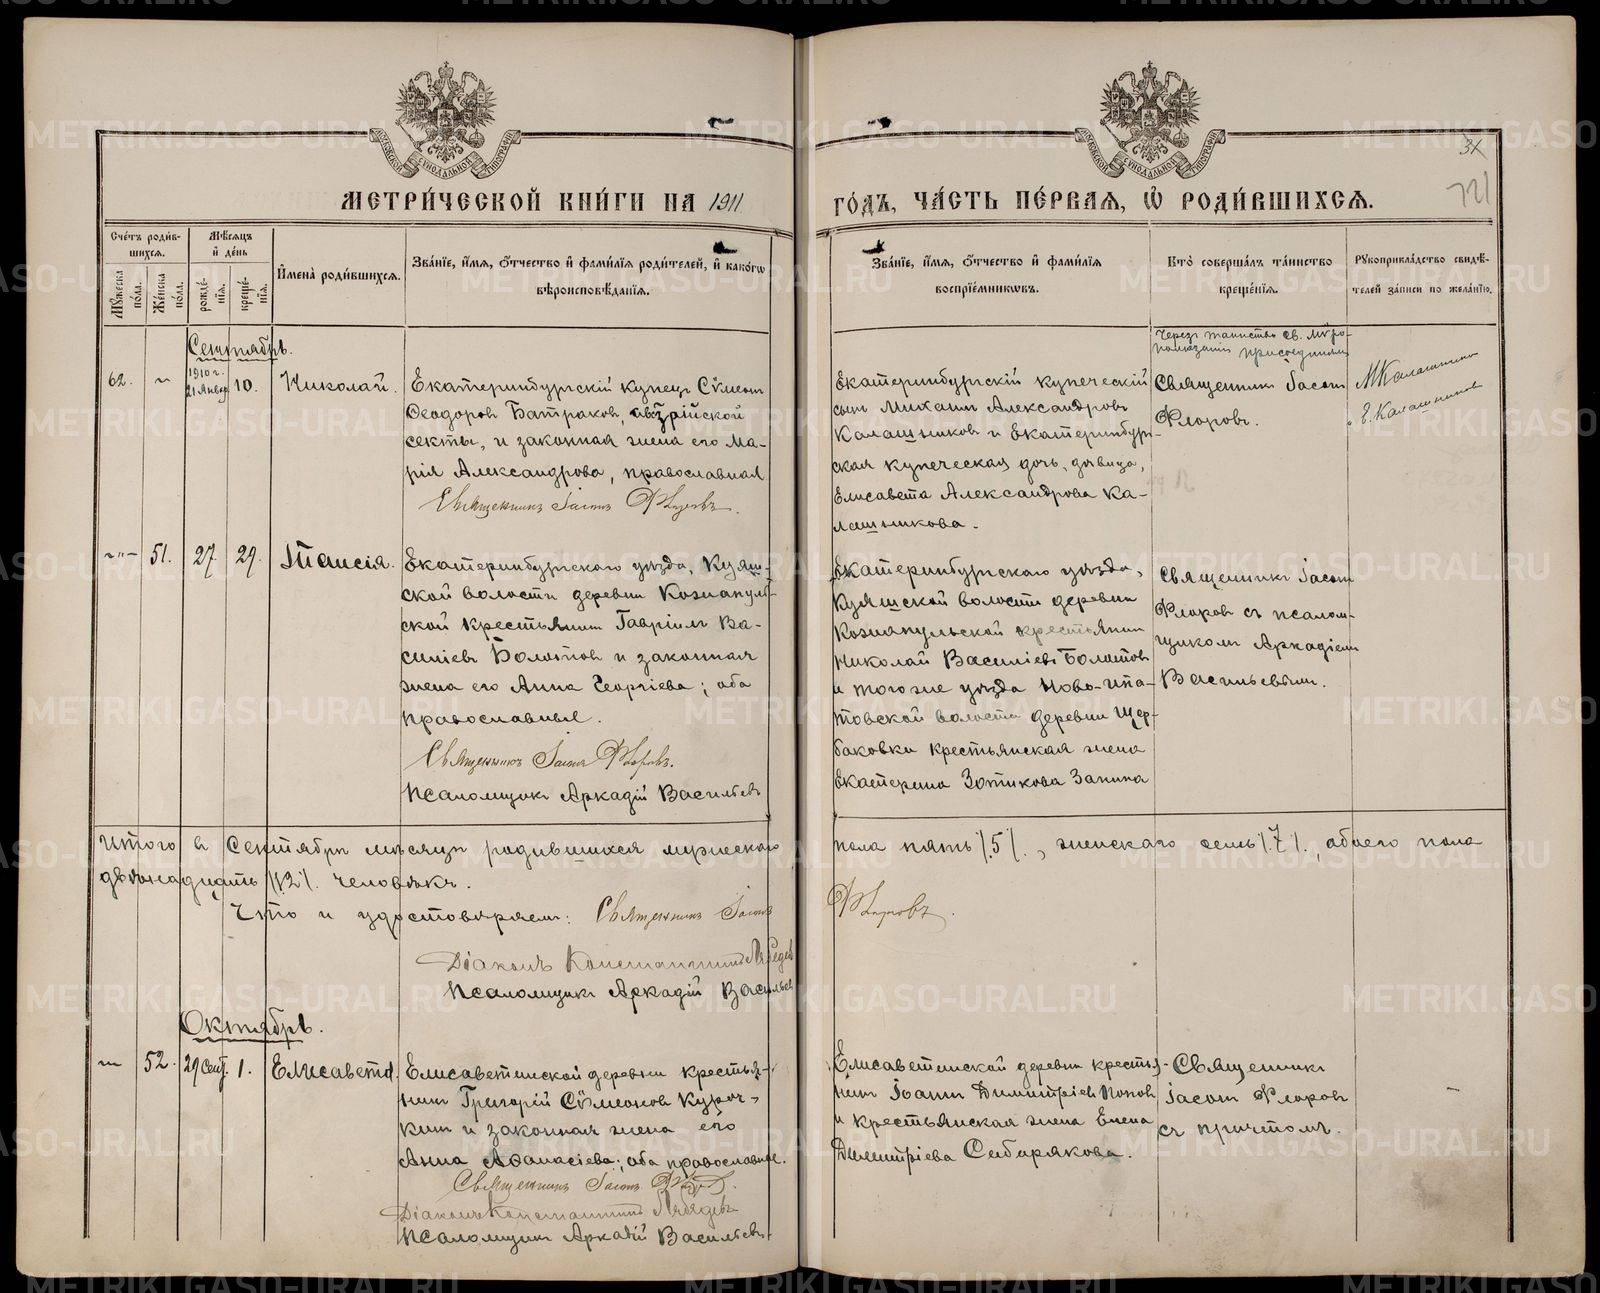 МЕТРИ́ЧЕСКОЙ КНИ́ГИ НА 1911
ГО́ДЪ, ЧА́СТЬ ПЕ́РВАЯ, Ѡ҆ РОДИ́ВШИХСЯ.
31
721
Сче́тъ роди́в-
шихся.
Мꙋ́жеска по́ла.
Же́нска по́ла.
Мѣ́сяцъ
и҆ де́нь
рожде́-
нїя.
креще́-
нїя.
И҆мена̀ роди́вшихся.
Зва́нїе, и҆́мя, о҆́тчество и҆ фами́лїя роди́телей, и҆ како́гѡ
вѣроисповѣ́данїя.
Зва́нїе, и҆́мя, о҆́тчество и҆ фами́лїя
воспрїе́мникѡвъ.
Кто̀ соверша́лъ та́инство
креще́нїя.
Рꙋкоприкла́дство свидѣ́-
телей за́писи по жела́нїю.
Сентябрь.
62.
1910 г.
21 Январ
10.
Николай.
Екатеринбургскій купецъ Сѵмеонъ
Ѳеодоровъ Батраковъ,
секты, и законная жена его Ма-
рія Александрова, православная
Священникъ Іасонъ Флоровъ.
Екатеринбургскій купеческій
сынъ Михаилъ Александровъ
Калашниковъ и Екатеринбург-
ская купеческая дочь, дѣвица,
Елисавета Александрова Ка-
лашникова.
Чрезъ таинство Св. Мѵро-
помазанія присоединилъ
Священникъ Іасонъ
Флоровъ.
М Калашников
Е. Калашникова
51.
27
29.
Таисія.
Екатеринбургскаго уѣзда, Куяш-
ской волости деревни Козканкуль-
ской крестьянинъ Гавріилъ Ва-
силіевъ Болотовъ и законная
жена его Анна Георгіева; оба
православные.
Священникъ Іасонъ Флоровъ.
Псаломщикъ Аркадій Васильевъ
Екатеринбургскаго уѣзда,
Куяшской волости деревни
крестьянинъ
Николай Василіевъ Болотовъ
и того же уѣзда Ново-Ипа-
товской волости деревни Щер-
баковки крестьянская жена
Екатерина Зотикова Запина
Священникъ Іасонъ
Флоровъ съ псалом-
щикомъ Аркадіемъ
Васильевымъ.
Итого въ Сентябрѣ мѣсяцѣ родившихся мужескаго
пола пять /.5/., женскаго семь /.7/., обоего пола
двѣнадцать /12/. человѣкъ.
Что и удостовѣряемъ: Священникъ Іасонъ
Флоровъ.
Діаконъ Константинъ Лебедевъ
Псаломщикъ Аркадій Васильевъ
Октябрь.
52.
29 Сент.
1.
Елисавета.
Елисаветинской деревни крестья-
нинъ Григорій Сѵмеоновъ Куроч-
кинъ и законная жена его
Анна Аѳанасіева; оба православные.
Священникъ Іасонъ Флоровъ.
Діаконъ Константинъ Лебедевъ
Псаломщикъ Аркадій Васильевъ
Елисаветинской деревни крестья-
нинъ Іоаннъ Димитріевъ Поповъ
и крестьянская жена Елена
Димитріева Сибирякова.
Священникъ
Іасонъ Флоровъ
съ причтомъ.
METRIKI.GASO-URAL.RU